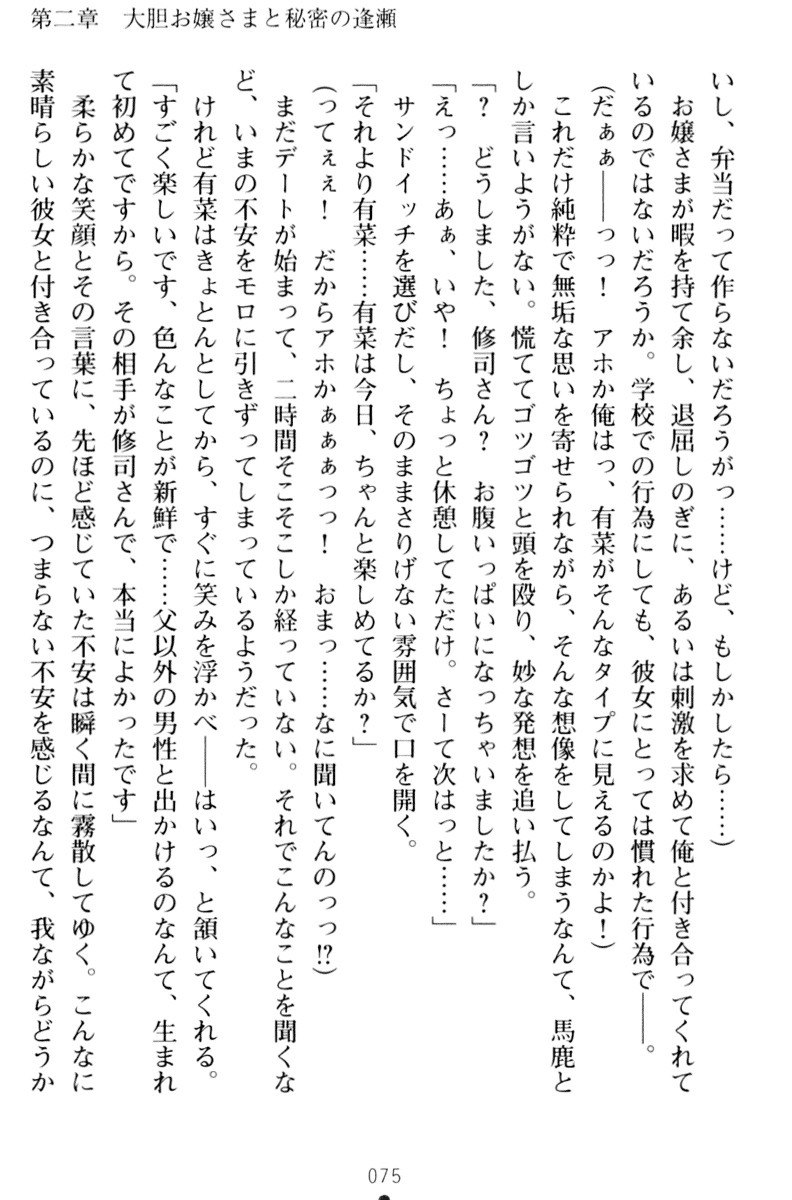 第二章　大胆お嬢さまと秘密の逢瀬
いし、弁当だって作らないだろうがっ……けど、もしかしたら……)
　お嬢さまが暇を持て余し、退屈しのぎに、あるいは刺激を求めて俺と付き合ってくれて
いるのではないだろうか。学校での行為にしても、彼女にとっては慣れた行為で――。
(だぁぁ――っっ！　アホか俺はっ、有菜がそんなタイプに見えるのかよ！)
　これだけ純粋で無垢な思いを寄せられながら、そんな想像をしてしまうなんて、馬鹿と
しか言いようがない。慌ててゴツゴツと頭を殴り、妙な発想を追い払う。
「？　どうしました、修司さん？　お腹いっぱいになっちゃいましたか？」
「えっ……あぁ、いや！　ちょっと休憩してただけ。さーて次はっと……」
　サンドイッチを選びだし、そのままさりげない雰囲気で口を開く。
「それより有菜……有菜は今日、ちゃんと楽しめてるか？」
(ってぇぇ！　だからアホかぁぁぁっっ！　おまっ……なに聞いてんのっっ!?)
　まだデートが始まって、二時間そこそこしか経っていない。それでこんなことを聞くな
ど、いまの不安をモロに引きずってしまっているようだった。
　けれど有菜はきょとんとしてから、すぐに笑みを浮かべ――はいっ、と頷いてくれる。
「すごく楽しいです、色んなことが新鮮で……父以外の男性と出かけるのなんて、生まれ
て初めてですから。その相手が修司さんで、本当によかったです」
　柔らかな笑顔とその言葉に、先ほど感じていた不安は瞬く間に霧散してゆく。こんなに
素晴らしい彼女と付き合っているのに、つまらない不安を感じるなんて、我ながらどうか
075